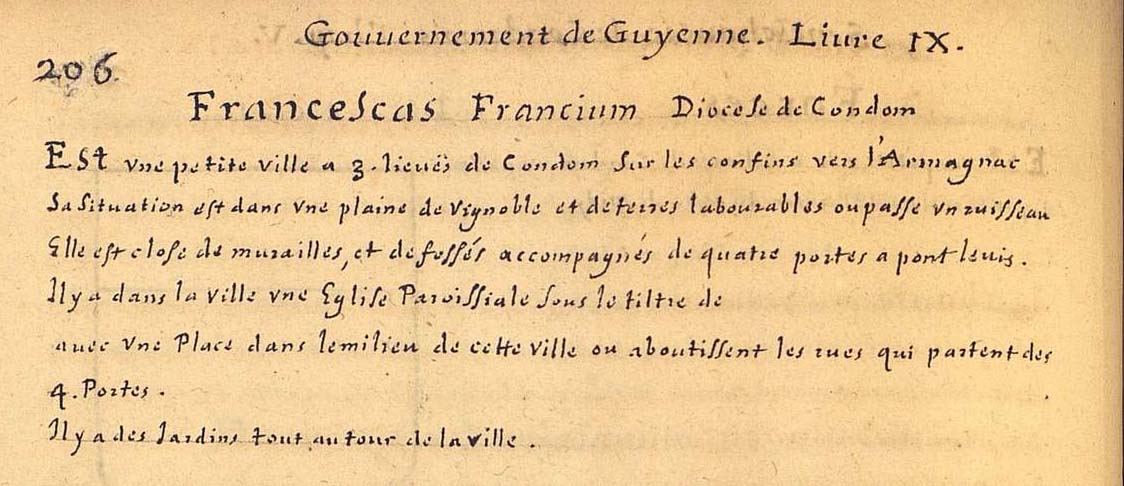 Gouuernement de Guyenne. Liure IX.
206.
Francescas Francium Diocese de Condom
Est vne petite ville a 3. lieuës de Condom sur les confins vers l'Armagnac
Sa situation est dans vne plaine de vignoble et de terres labourables ou passe vn ruisseau
Elle est close de murailles, et de fossés accompagnés de quatre portes a pont leuis.
Il y a dans la ville vne Eglise Paroissiale sous le tiltre de
auec vne Place dans le milieu de cette ville ou aboutissent les rues qui partent des
4. Portes.
Il y a des Jardins tout autour de la ville.